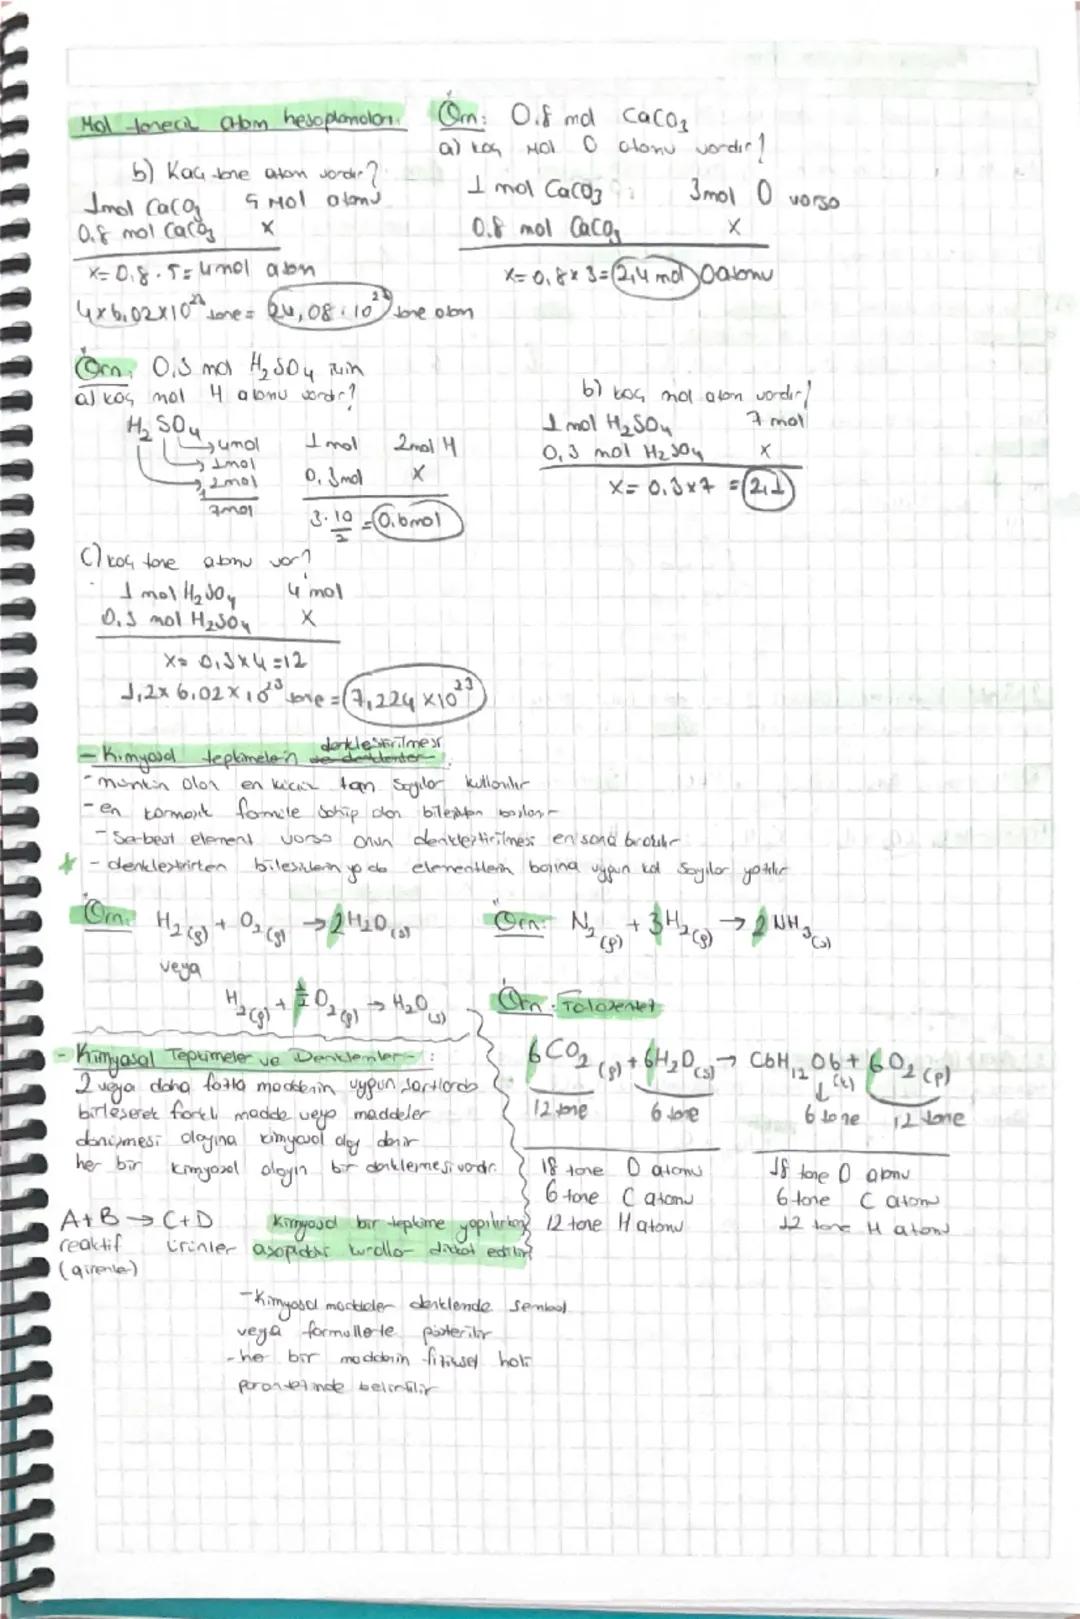 Mol tanecik atom hesaplamaları.
Örn: 0.8 mol CaCO3
a) kaç mol O atomu vardır?
1 mol CaCO3 3mol O varsa
0.8 mol CaCO3 X
X= 0,8x3=2,4 mol O atomu
b) Kaç tane atom vardır?
1mol CaCO3 5 mol atomu
0.8 mol CaCO3 X
X= 0,8.5=4mol atom
4x6,02x10²³ tane= 24,08.10²³ tane atom
Örn: 0,3 mol H2SO4 için
a) kaç mol H atomu vardır?
H2SO4
4mol
1mol
2mol
7mol
1 mol 2mol H
0,3mol X
3.10/2 = 0.6mol
b) kaç mol atom vardır?
1 mol H2SO4 7 mol
0,3 mol H2SO4 X
X= 0.3x7 = 2,1
C) kaç tane atomu var?
1 mol H2SO4 4 mol
0.3 mol H2SO4 X
X= 0,3x4=12
1,2x 6,02x10²³ tane = 7,224 x10²³
- Kimyasal tepkimelerin denkleştirilmesi
- mümkün olan en küçük tam sayılar kullanılır
- en karmaşık formüle sahip olan bileşikten başlanır
- Serbest element varsa onun denkleştirilmesi en sona bırakılır
* - denkleştirirken bileşiklerin ya da elementlerin başına uygun kat sayılar yazılır
Örn: H2(g) + O2(g) → 2H2O(s)
veya
H2(g) + 1/2 O2(g) → H2O(s)
Örn: N2(g) + 3H2(g) → 2NH3(s)
Örn: Fotosentez
6CO2(g) + 6H2O(s) → C6H12O6(k) + 6O2(g)
12 tane 6 tane 6 tane 12 tane
18 tane O atomu 18 tane O atomu
6 tane C atomu 6 tane C atomu
12 tane H atomu 12 tane H atomu
- Kimyasal Tepkimeler ve Denklemler - :
2 veya daha fazla maddenin uygun şartlarda
birleşerek farklı madde veya maddeler
dönüşmesi olayına kimyasal olay denir
her bir kimyasal olayın bir denklemesi vardır.
A+B → C+D
reaktif ürünler
(girenler)
Kimyasal bir tepkime yapılırken
aşağıdaki kurallar dikkat edilir
- Kimyasal maddeler denklemde sembol
veya formüllerle gösterilir
- her bir maddenin fiziksel hali
parantezinde belirtilir